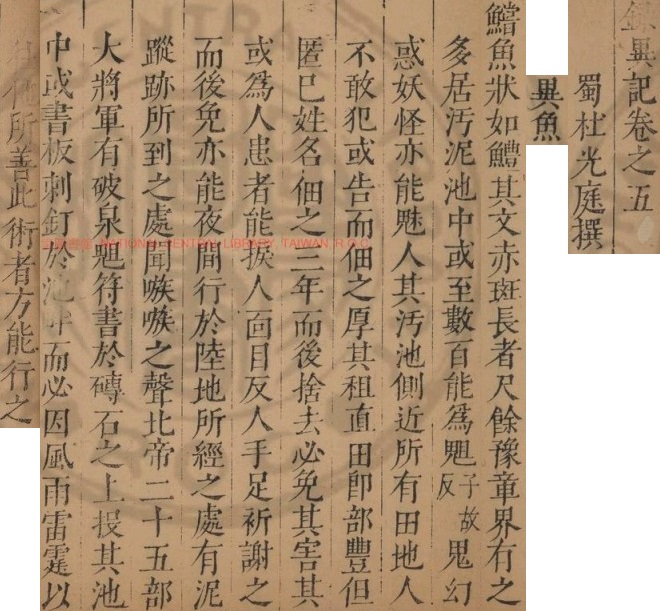 錄異記卷之五
蜀杜光庭撰
異魚
鱛魚狀如鱧其文赤斑長者尺餘豫章界有之
多居汚泥池中或至數百能爲魊子故反鬼幻
惑妖怪亦能魅人其汚池側近所有田地人
不敢犯或告而佃之厚其租直田卽部豐但
匿已姓名佃之三年而後捨去必免其害其
或爲人患者能捩人面目反人手足祈謝之
而後免亦能夜間行於陸地所經之處有泥
蹤跡所到之處聞嗾嗾之聲北帝二十五部
大將軍有破泉魊符書於磚石之上投其池
中或書板刺釘於池畔而必因風雨雷霆以
往他所善此術者方能行之
NATIONAL CENTRAL LIBRARY, TAIWAN, R.O.C.